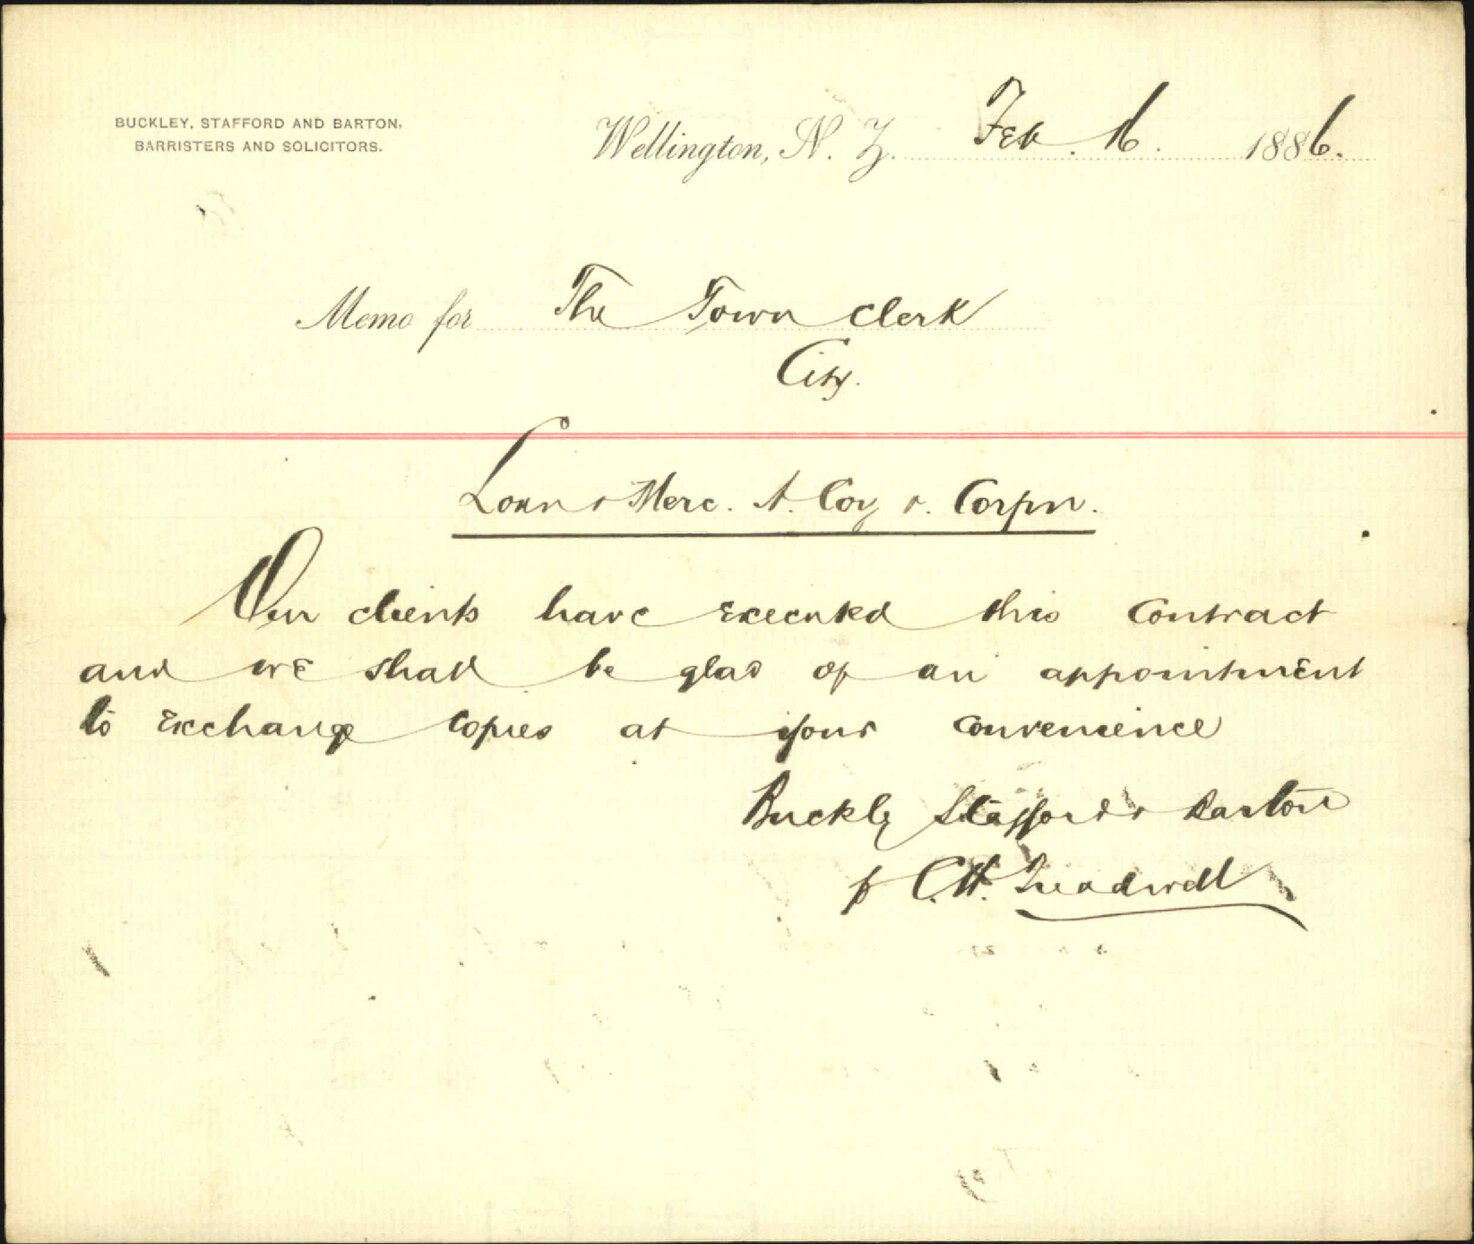 BUCKLEY, STAFFORD AND BARTON,
BARRISTERS AND SOLICITORS.
Wellington, N. Z. Feb. 16. 1886.
Memo for The Town Clerk
City.
Loan & Merc. A. Coy & Corpn.
Our clients have executed this contract
and we shall be glad of an appointment
to exchange copies at your convenience
Buckley Stafford & Barton
p C.H. Treadwell